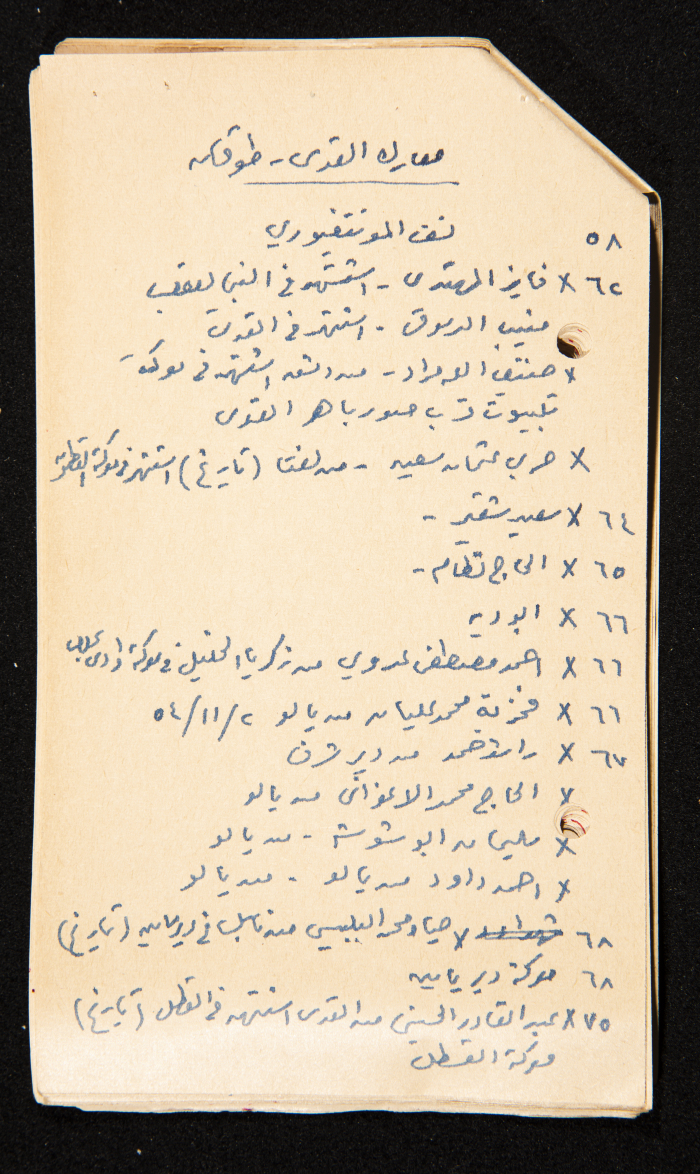 معارك القدس - طوقان
٥٨ نسف المونتفيوري
٦٢ X فايز المهتدى - استشهد في النبي يعقوب
منيب الدسوقي - استشهد في القدس
X مراد - من استشهد في معركة
تلبيوت قرب صور باهر القدس
X حربي عثمان سعيد - من لفتا (تاريخ) استشهد في معركة القطمون
٦٤ X سعيد شقير -
٦٥ X الحاج نظام -
٦٦ X ابو ديه
٦٦ X احمد مصطفى عدوي من زكريا الخليل في معركة وادي
٦٦ X محمد عليان من يالو ٥٤/١١/٢
٦٧ X راشد حمد من دير شرف
X الحاج محمد من يالو
X سليمان ابو شوشة - من يالو
X احمد داود من يالو - من يالو
٦٨ X ضياء محمد البلبيسي من نابلس في دير ياسين (تاريخ)
٦٨ معركة دير ياسين
٧٥ X عبد القادر الحسيني من القدس استشهد في القسطل (تاريخ)
معركة القسطل